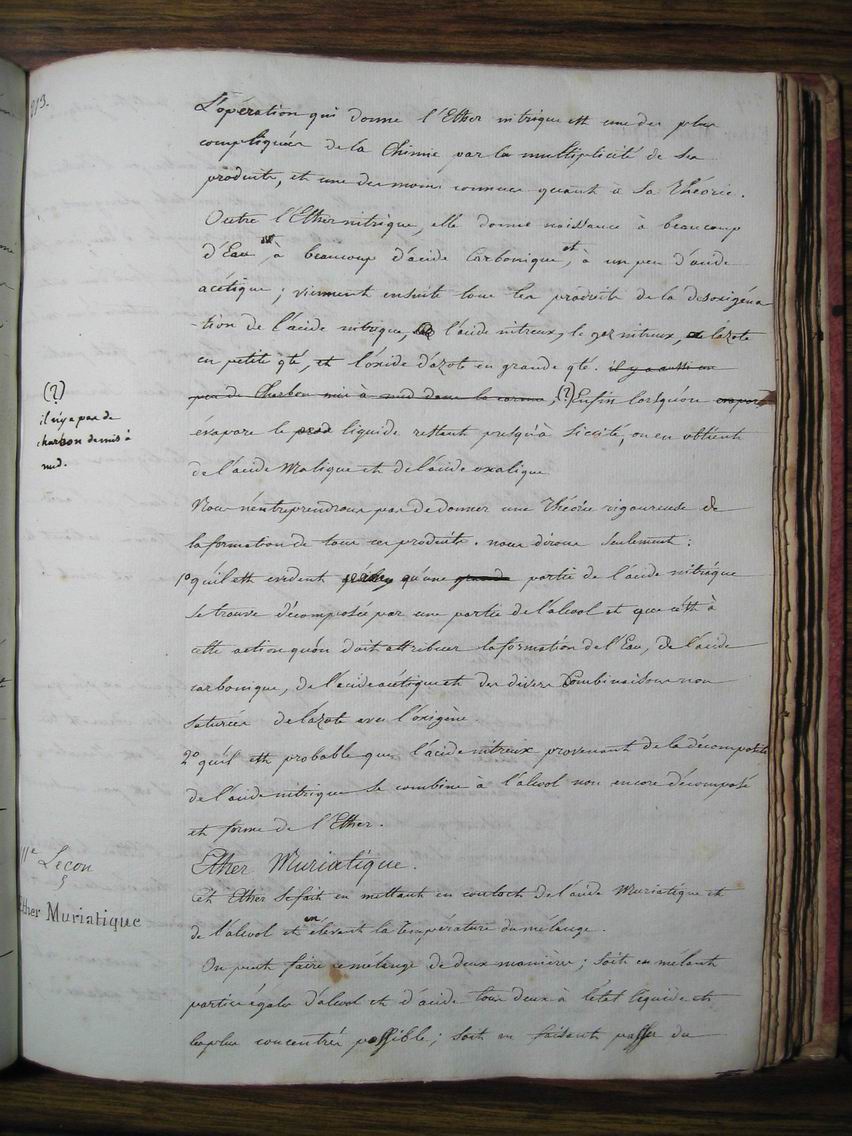 213.
L'opération qui donne l'Ether nitrique est une des plus
compliquées de la Chimie par la multiplicité de ses
produits, et une des moins connues quant à sa Théorie.
Outre l'Ether nitrique, elle donne naissance à beaucoup
d'Eau, et à beaucoup d'acide Carbonique, et à un peu d'acide
acétique ; viennent ensuite tous les produits de la desoxigéna
-tion de l'acide nitrique, l'acide nitreux, le gaz nitreux, l'azote
en petite qté, et l'oxide d'azote en grande qté. il y a aussi un
peu de Charbon mis à nud dans la cornue, (?) Enfin lorsqu'on evapore
évapore le prod liquide restant jusqu'à siccité, on en obtient
de l'acide Malique et de l'acide oxalique
(?)
il n'y a pas de
charbon de mis à
nud.
Nous n'entreprendrons pas de donner une Théorie rigoureuse de
la formation de tous ces produits. nous dirons seulement :
1° qu'il est evident qu'une grande partie de l'acide nitrique
se trouve décomposée par une partie de l'alcool et que c'est à
cette action qu'on doit attribuer la formation de l'Eau, de l'acide
carbonique, de l'acide acétique et des divers Combinaisons non
saturées de l'azote avec l'oxigène
2° qu'il est probable que l'acide nitreux provenant de la décomposit
de l'acide nitrique se combine à l'alcool non encore décomposé
et forme de l'Ether.
Leçon
Ether Muriatique
Ether Muriatique.
Cet Ether se fait en mettant en contact de l'acide Muriatique et
de l'alcool et en élevant la Température du mélange.
On peut faire ce mélange de deux manières ; soit en mêlant
parties égales d'alcool et d'acide tous deux à l'état liquide et
les plus concentrés possible ; soit en faisant passer du